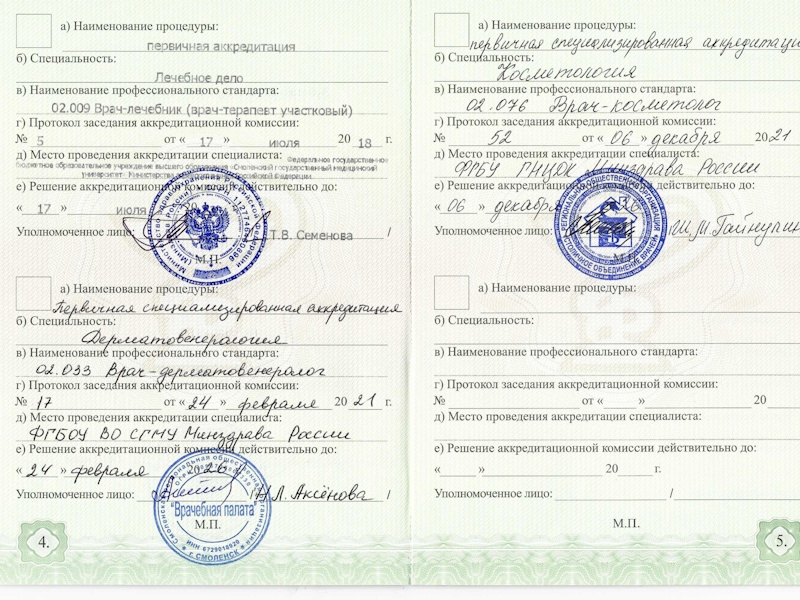 а) Наименование процедуры:
первичная аккредитация
б) Специальность:
Лечебное дело
в) Наименование профессионального стандарта:
02.009 Врач-лечебник (врач-терапевт участковый)
г) Протокол заседания аккредитационной комиссии:
№ 5 от « 17 » июля 20 18 г.
д) Место проведения аккредитации специалиста: Федеральное государственное
бюджетное образовательное учреждение высшего образования «Смоленский государственный медицинский
университет» Министерства Российской Федерации
е) Решение аккредитационной комиссии действительно до:
« 17 » июля
Уполномоченное лицо: Т.В. Семенова /
М.П.
а) Наименование процедуры:
Первичная специализированная аккредитация
б) Специальность:
Дерматовенерология
в) Наименование профессионального стандарта:
02.033 Врач-дерматовенеролог
г) Протокол заседания аккредитационной комиссии:
№ 17 от « 24 » февраля 20 21 г.
д) Место проведения аккредитации специалиста:
ФГБОУ ВО СГМУ Минздрава России
е) Решение аккредитационной комиссии действительно до:
« 24 » февраля 20 26
Уполномоченное лицо: / Н.Л. Аксёнова /
"Врачебная палата"
М.П.
ИНН 6729018920
г. СМОЛЕНСК
4.
а) Наименование процедуры:
первичная специализированная аккредитаци
б) Специальность:
Косметология
в) Наименование профессионального стандарта:
02.076 Врач-косметолог
г) Протокол заседания аккредитационной комиссии:
№ 52 от « 06 » декабря 20 21
д) Место проведения аккредитации специалиста:
ФГБУ ГНЦДК Минздрава России
е) Решение аккредитационной комиссии действительно до:
« 06 » декабря
Уполномоченное лицо:
М.П.
а) Наименование процедуры:
б) Специальность:
в) Наименование профессионального стандарта:
г) Протокол заседания аккредитационной комиссии:
№ от « » 20 г.
д) Место проведения аккредитации специалиста:
е) Решение аккредитационной комиссии действительно до:
« » 20 г.
Уполномоченное лицо: / /
М.П.
5.